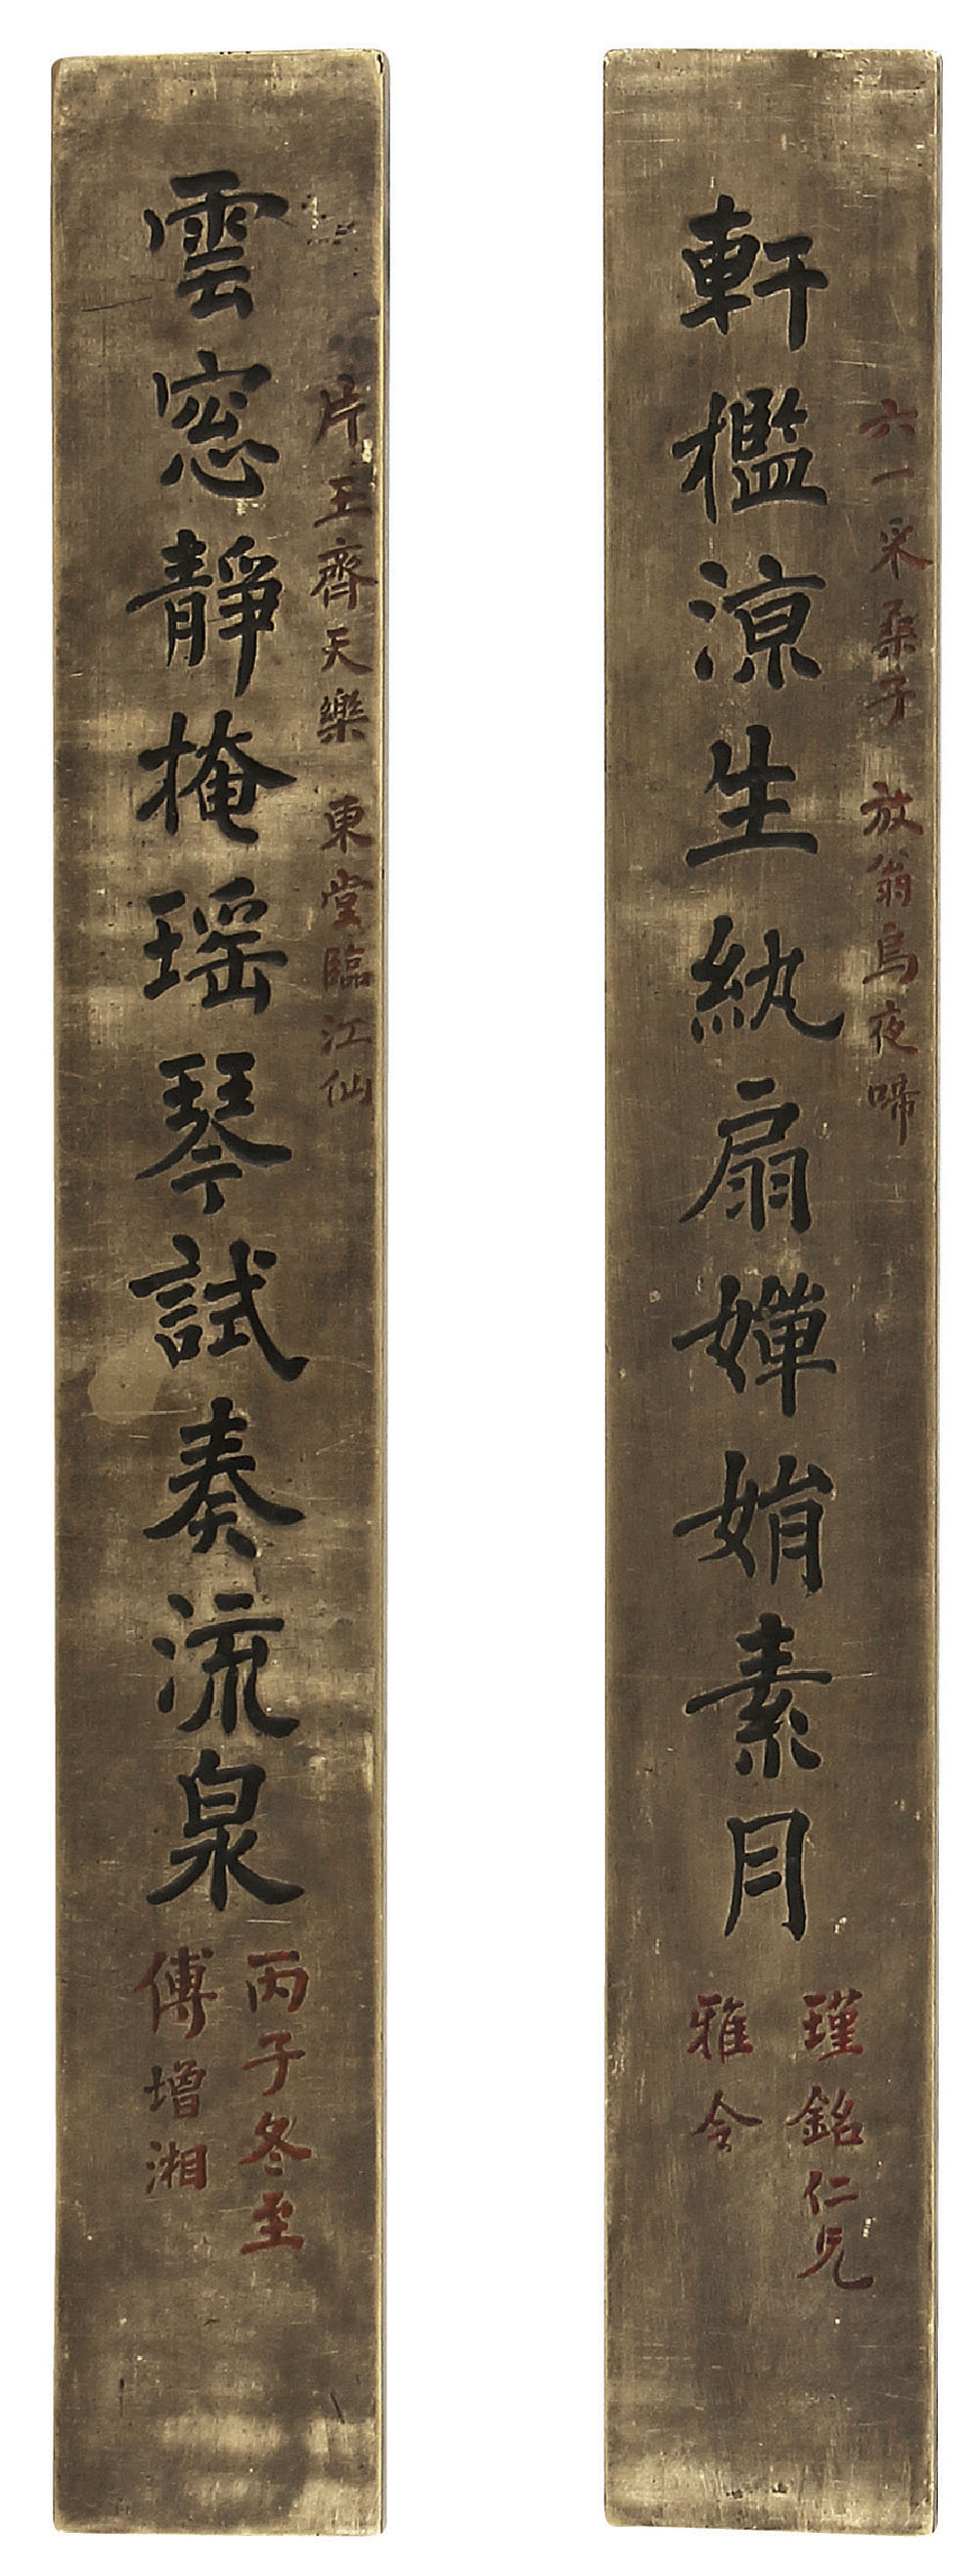 六一采桑子 放翁烏夜啼
軒檻涼生紈扇嬋娟素月
瑾銘仁兄
雅令
片玉齊天樂 東堂臨江仙
雲窓靜掩瑶琴試奏流泉
丙子冬至
傅增湘